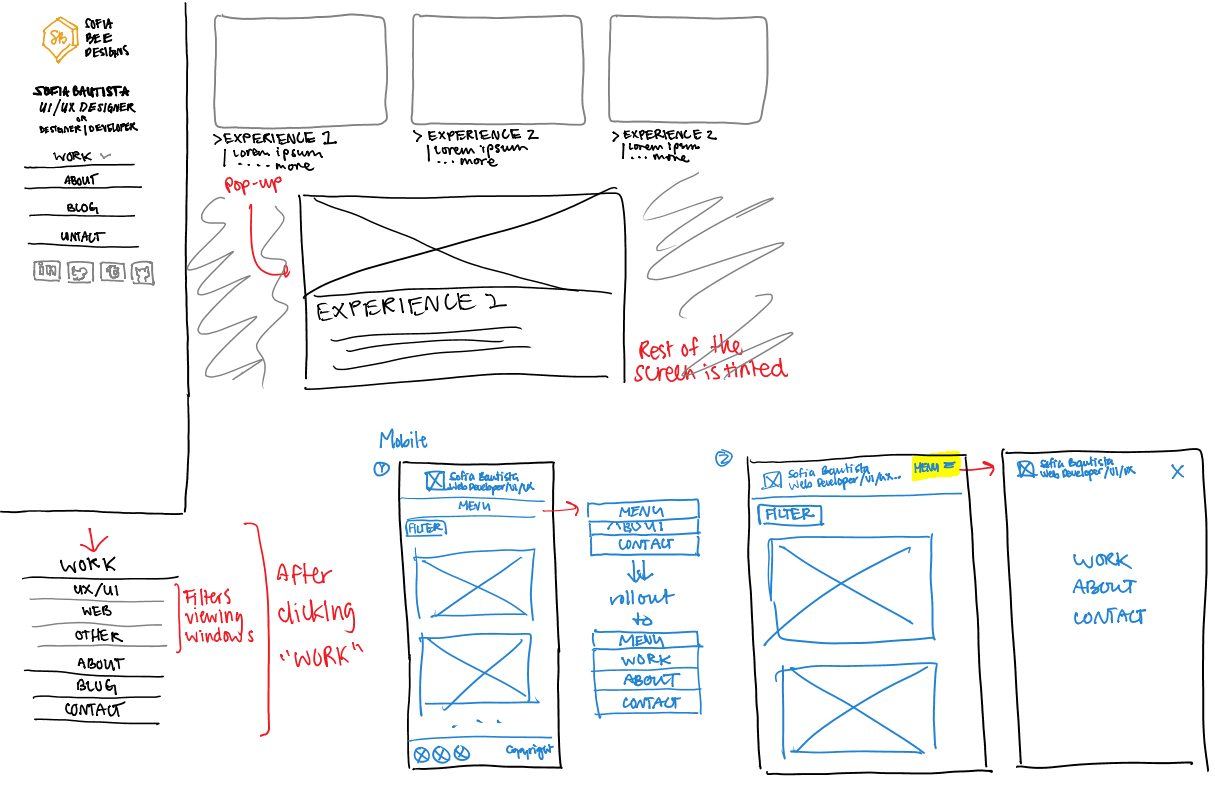 SB
SOFIA
BEE
DESIGNS
SOFIA BAUTISTA
UI/UX DESIGNER
OR
DESIGNER | DEVELOPER
WORK
ABOUT
BLOG
CONTACT
in
> EXPERIENCE 1
Lorem ipsum
.... more
> EXPERIENCE 2
Lorem ipsum
... more
> EXPERIENCE 2
Lorem ipsum
... more
Pop-up
EXPERIENCE 2
Rest of the
screen is tinted
WORK
UX/UI
WEB
OTHER
ABOUT
BLOG
CONTACT
Filters
viewing
windows
After
clicking
"WORK"
Mobile
1
Sofia Bautista
Web Developer/UI/UX
MENU
FILTER
...
Copyright
MENU
ABOUT
CONTACT
rollout
to
MENU
WORK
ABOUT
CONTACT
2
Sofia Bautista
Web Developer/UI/UX...
MENU
FILTER
Sofia Bautista
Web Developer/UI/UX
X
WORK
ABOUT
CONTACT